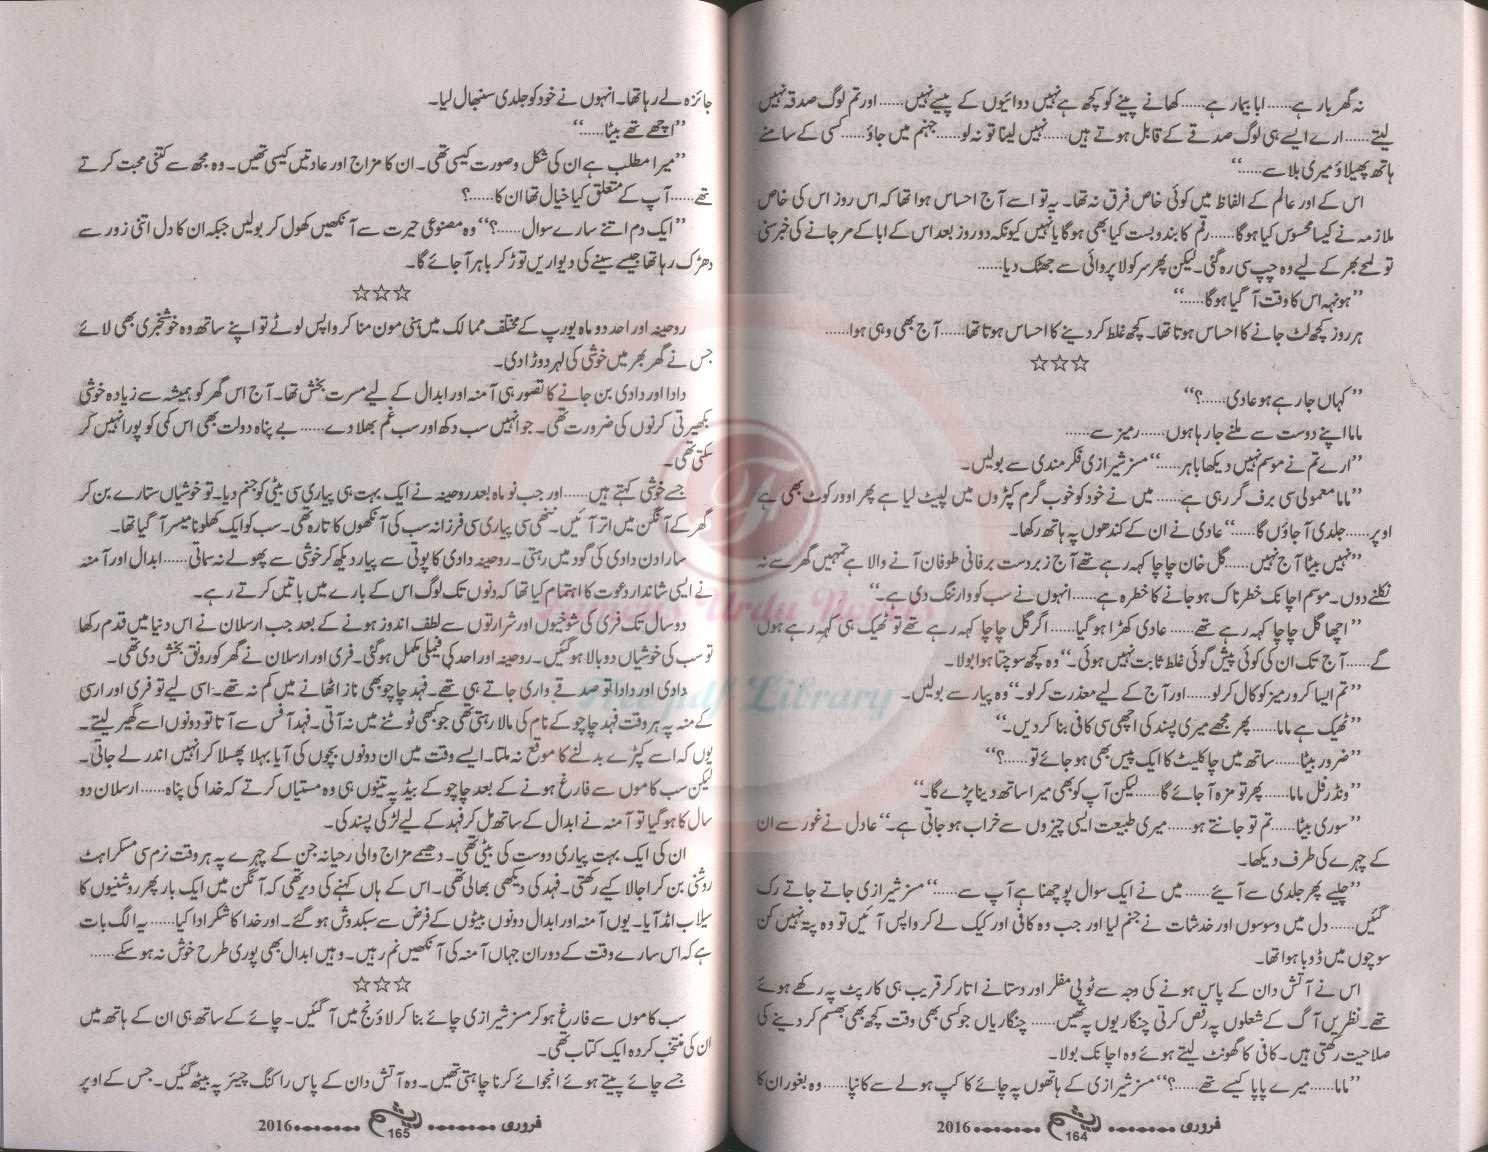 نہ گھر بار ہے...... ابا بیمار ہے...... کھانے پینے کو کچھ ہے نہیں دوائیوں کے پیسے نہیں...... اور تم لوگ صدقہ نہیں
لیتے...... ارے ایسے ہی لوگ صدقے کے قابل ہوتے ہیں...... نہیں لینا تو نہ لو...... جہنم میں جاؤ...... کسی کے سامنے
ہاتھ پھیلاؤ میری بلا سے......“
اس کے اور عالم کے الفاظ میں کوئی خاص فرق نہ تھا۔ یہ تو اسے آج احساس ہوا تھا کہ اس روز اس کی خاص
ملازمہ نے کیسا محسوس کیا ہوگا...... رقم کا بندوبست کیا بھی ہوگا یا نہیں کیونکہ دو روز بعد اس کے ابا کے مر جانے کی خبر سنی
تو لمحے بھر کے لیے وہ چپ سی رہ گئی۔ لیکن پھر سر کو لاپروائی سے جھٹک دیا......
”ہونہہ اس کا وقت آ گیا ہوگا......“
ہر روز کچھ لٹ جانے کا احساس ہوتا تھا۔ کچھ غلط کر دینے کا احساس ہوتا تھا...... آج بھی وہی ہوا......
☆☆☆
”کہاں جا رہے ہو عادی......؟“
ماما اپنے دوست سے ملنے جا رہا ہوں...... رمیز سے......
”ارے تم نے موسم نہیں دیکھا باہر......“ مسز شیرازی فکرمندی سے بولیں۔
”ماما معمولی سی برف گر رہی ہے...... میں نے خود کو خوب گرم کپڑوں میں لپیٹ لیا ہے پھر اوور کوٹ بھی ہے
اوپر...... جلدی آ جاؤں گا......“ عادی نے ان کے کندھوں پہ ہاتھ رکھا۔
”نہیں بیٹا آج نہیں...... گل خان چاچا کہہ رہے تھے آج زبردست برفانی طوفان آنے والا ہے تمہیں گھر سے نہ
نکلنے دوں۔ موسم اچانک خطرناک ہو جانے کا خطرہ ہے...... انہوں نے سب کو وارننگ دی ہے۔“
”اچھا گل چاچا کہہ رہے تھے...... عادی کھڑا ہو گیا...... اگر گل چاچا کہہ رہے تھے تو ٹھیک ہی کہہ رہے ہوں
گے...... آج تک ان کی کوئی پیش گوئی غلط ثابت نہیں ہوئی۔“ وہ کچھ سوچتا ہوا بولا۔
”تم ایسا کرو رمیز کو کال کر لو...... اور آج کے لیے معذرت کر لو۔“ وہ پیار سے بولیں۔
”ٹھیک ہے ماما...... پھر مجھے میری پسند کی اچھی سی کافی بنا کر دیں۔“
”ضرور بیٹا...... ساتھ میں چاکلیٹ کا ایک پیس بھی ہو جائے تو......؟“
”ونڈر فل ماما...... پھر تو مزہ آ جائے گا...... لیکن آپ کو بھی میرا ساتھ دینا پڑے گا۔“
”سوری بیٹا...... تم تو جانتے ہو...... میری طبیعت ایسی چیزوں سے خراب ہو جاتی ہے۔“ عادل نے غور سے ان
کے چہرے کی طرف دیکھا۔
”چلیے پھر جلدی سے آیئے...... میں نے ایک سوال پوچھنا ہے آپ سے......“ مسز شیرازی جاتے جاتے رک
گئیں...... دل میں وسوسوں اور خدشات نے جنم لیا اور جب وہ کافی اور کیک لے کر واپس آئیں تو وہ پتہ نہیں کن
سوچوں میں ڈوبا ہوا تھا۔
اس نے آتش دان کے پاس ہونے کی وجہ سے ٹوپی مفلر اور دستانے اتار کر قریب ہی کارپٹ پہ رکھے ہوئے
تھے۔ نظریں آگ کے شعلوں پہ رقص کرتی چنگاریوں پہ تھیں...... چنگاریاں جو کسی بھی وقت کچھ بھی بھسم کر دینے کی
صلاحیت رکھتی ہیں۔ کافی کا گھونٹ لیتے ہوئے وہ اچانک بولا۔
”ماما...... میرے پاپا کیسے تھے......؟“ مسز شیرازی کے ہاتھوں پہ چائے کا کپ ہولے سے کانپا...... وہ بغور ان کا
فروری ........ ریشم 164 ........ 2016
جائزہ لے رہا تھا۔ انہوں نے خود کو جلدی سنبھال لیا۔
”اچھے تھے بیٹا......“
”میرا مطلب ہے ان کی شکل و صورت کیسی تھی۔ ان کا مزاج اور عادتیں کیسی تھیں۔ وہ مجھ سے کتنی محبت کرتے
تھے...... آپ کے متعلق کیا خیال تھا ان کا......؟
”ایک دم اتنے سارے سوال......؟“ وہ مصنوعی حیرت سے آنکھیں کھول کر بولیں جبکہ ان کا دل اتنی زور سے
دھڑک رہا تھا جیسے سینے کی دیواریں توڑ کر باہر آ جائے گا۔
☆☆☆
روحینہ اور احد دو ماہ یورپ کے مختلف ممالک میں ہنی مون منا کر واپس لوٹے تو اپنے ساتھ وہ خوشخبری بھی لائے
جس نے گھر بھر میں خوشی کی لہر دوڑا دی۔
دادا اور دادی بن جانے کا تصور ہی آمنہ اور ابدال کے لیے مسرت بخش تھا۔ آج اس گھر کو ہمیشہ سے زیادہ خوشی
بکھیرتی کرنوں کی ضرورت تھی۔ جو انہیں سب دکھ اور سب غم بھلا دے...... بے پناہ دولت بھی اس کمی کو پورا نہیں کر
سکتی تھی۔
جسے خوشی کہتے ہیں...... اور جب نو ماہ بعد روحینہ نے ایک بہت ہی پیاری سی بیٹی کو جنم دیا۔ تو خوشیاں ستارے بن کر
گھر کے آنگن میں اتر آئیں۔ ننھی سی پیاری سی فرزانہ سب کی آنکھوں کا تارہ تھی۔ سب کو ایک کھلونا میسر آ گیا تھا۔
سارا دن دادی کی گود میں رہتی۔ روحینہ دادی کا پوتی سے پیار دیکھ کر خوشی سے پھولے نہ سماتی...... ابدال اور آمنہ
نے ایسی شاندار دعوت کا اہتمام کیا تھا کہ دنوں تک لوگ اس کے بارے میں باتیں کرتے رہے۔
دو سال تک فری کی شوخیوں اور شرارتوں سے لطف اندوز ہونے کے بعد جب ارسلان نے اس دنیا میں قدم رکھا
تو سب کی خوشیاں دوبالا ہو گئیں۔ روحینہ اور احد کی فیملی مکمل ہو گئی۔ فری اور ارسلان نے گھر کو رونق بخش دی تھی۔
دادی اور دادا تو صدقے واری جاتے ہی تھے۔ فہد چاچو بھی ناز اٹھانے میں کم نہ تھے۔ اسی لیے تو فری اور ارسی
کے منہ پہ ہر وقت فہد چاچو کے نام کی مالا رہتی تھی جو کبھی ٹوٹنے میں نہ آتی۔ فہد آفس سے آتا تو دونوں اسے گھیر لیتے۔
یوں کہ اسے کپڑے بدلنے کا موقع نہ ملتا۔ ایسے وقت میں ان دونوں بچوں کی آیا بہلا پھسلا کر انہیں اندر لے جاتی۔
لیکن سب کاموں سے فارغ ہونے کے بعد چاچو کے بیڈ پہ تینوں ہی وہ مستیاں کرتے کہ خدا کی پناہ...... ارسلان دو
سال کا ہو گیا تو آمنہ نے ابدال کے ساتھ مل کر فہد کے لیے لڑکی پسند کی۔
ان کی ایک بہت پیاری دوست کی بیٹی تھی۔ دھیمے مزاج والی رحیانہ جن کے چہرے پہ ہر وقت نرم سی مسکراہٹ
روشنی بن کر اجالا کیے رکھتی۔ فہد کی دیکھی بھالی تھی۔ اس کے ہاں کہنے کی دیر تھی کہ آنگن میں ایک بار پھر روشنیوں کا
سیلاب امڈ آیا۔ یوں آمنہ اور ابدال دونوں بیٹوں کے فرض سے سبکدوش ہو گئے۔ اور خدا کا شکر ادا کیا...... یہ الگ بات
ہے کہ اس سارے وقت کے دوران جہاں آمنہ کی آنکھیں نم رہیں۔ وہیں ابدال بھی پوری طرح خوش نہ ہو سکے......
☆☆☆
سب کاموں سے فارغ ہو کر مسز شیرازی چائے بنا کر لاؤنج میں آ گئیں۔ چائے کے ساتھ ہی ان کے ہاتھ میں
ان کی منتخب کردہ ایک کتاب تھی۔
جسے چائے پیتے ہوئے انجوائے کرنا چاہتی تھیں۔ وہ آتش دان کے پاس راکنگ چیئر پہ بیٹھ گئیں۔ جس کے اوپر
فروری ........ ریشم 165 ........ 2016
Famous Urdu Novels
Free pdf Library